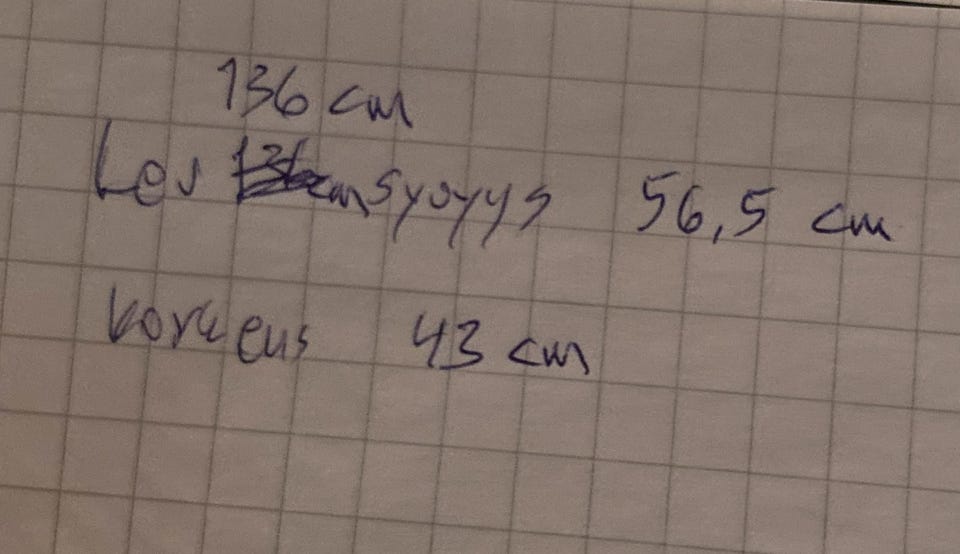 136 cm
Lev syvyys 56,5 cm
korkeus 43 cm